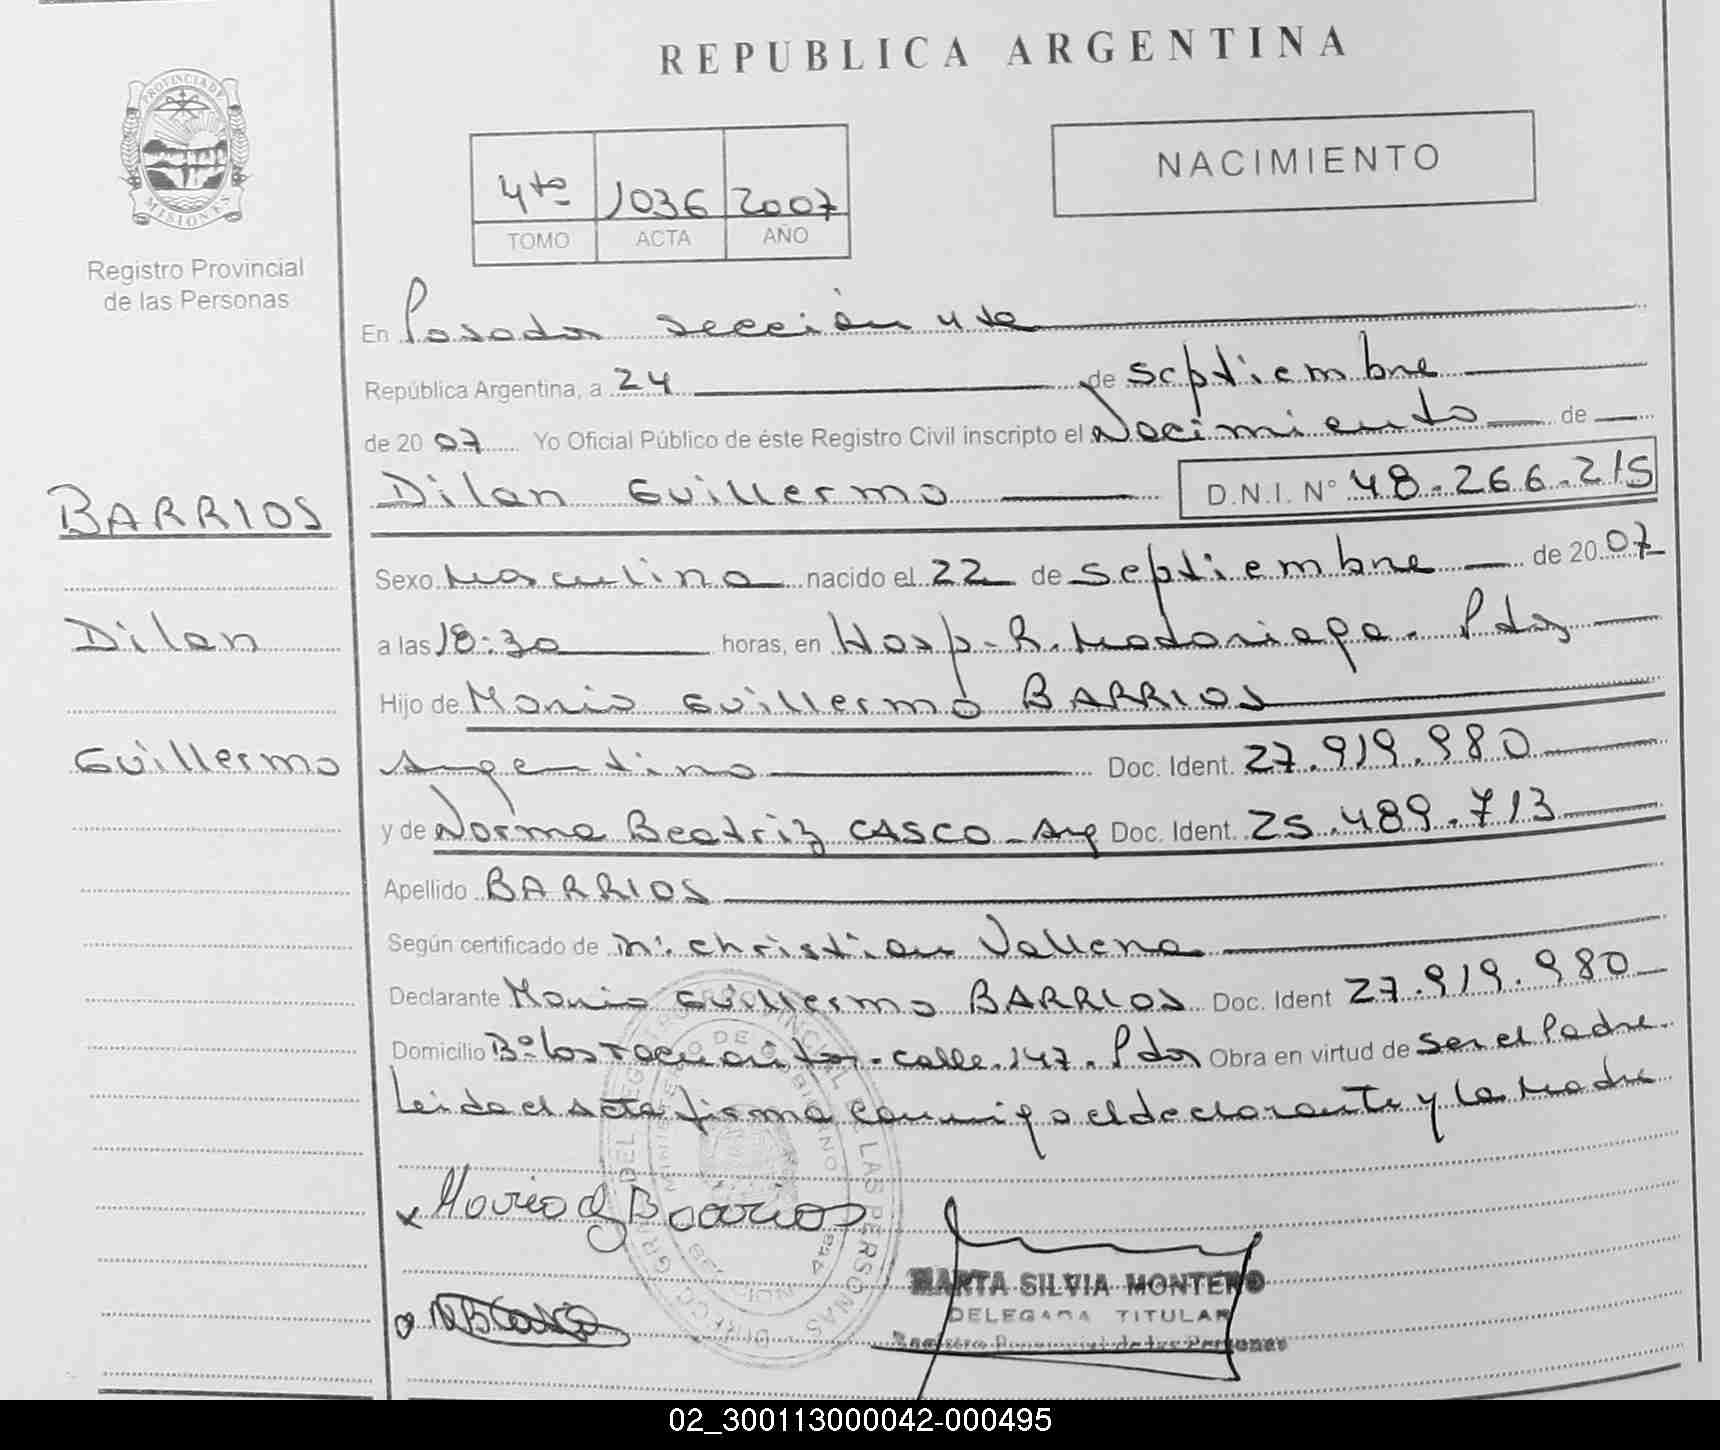 REPUBLICA ARGENTINA
PROVINCIA DE
MISIONES
Registro Provincial
de las Personas
4to 1036 2007
TOMO ACTA AÑO
NACIMIENTO
En Posadas sección 4ta
República Argentina, a 24 de septiembre
de 2007 Yo Oficial Público de éste Registro Civil inscripto el Nacimiento de
BARRIOS
Dilan
Guillermo
Dilan Guillermo D.N.I. N° 48.266.215
Sexo Masculino nacido el 22 de septiembre de 2007
a las 18:30 horas, en Hosp. R. Madariaga. Pdas
Hijo de Mario Guillermo BARRIOS
Argentino Doc. Ident. 27.919.980
y de Norma Beatriz CASCO - Arg Doc. Ident. 25.489.713
Apellido BARRIOS
Según certificado de christian
Declarante Mario Guillermo BARRIOS Doc. Ident 27.919.980
Domicilio B° los calle 147. Pdas Obra en virtud de ser el Padre.
Leida el Acta firma conmigo el declarante y la Madre
x Mario G Barrios
MARTA SILVIA MONTERO
DELEGADA TITULAR
Registro Provincial de las Personas
02_300113000042-000495